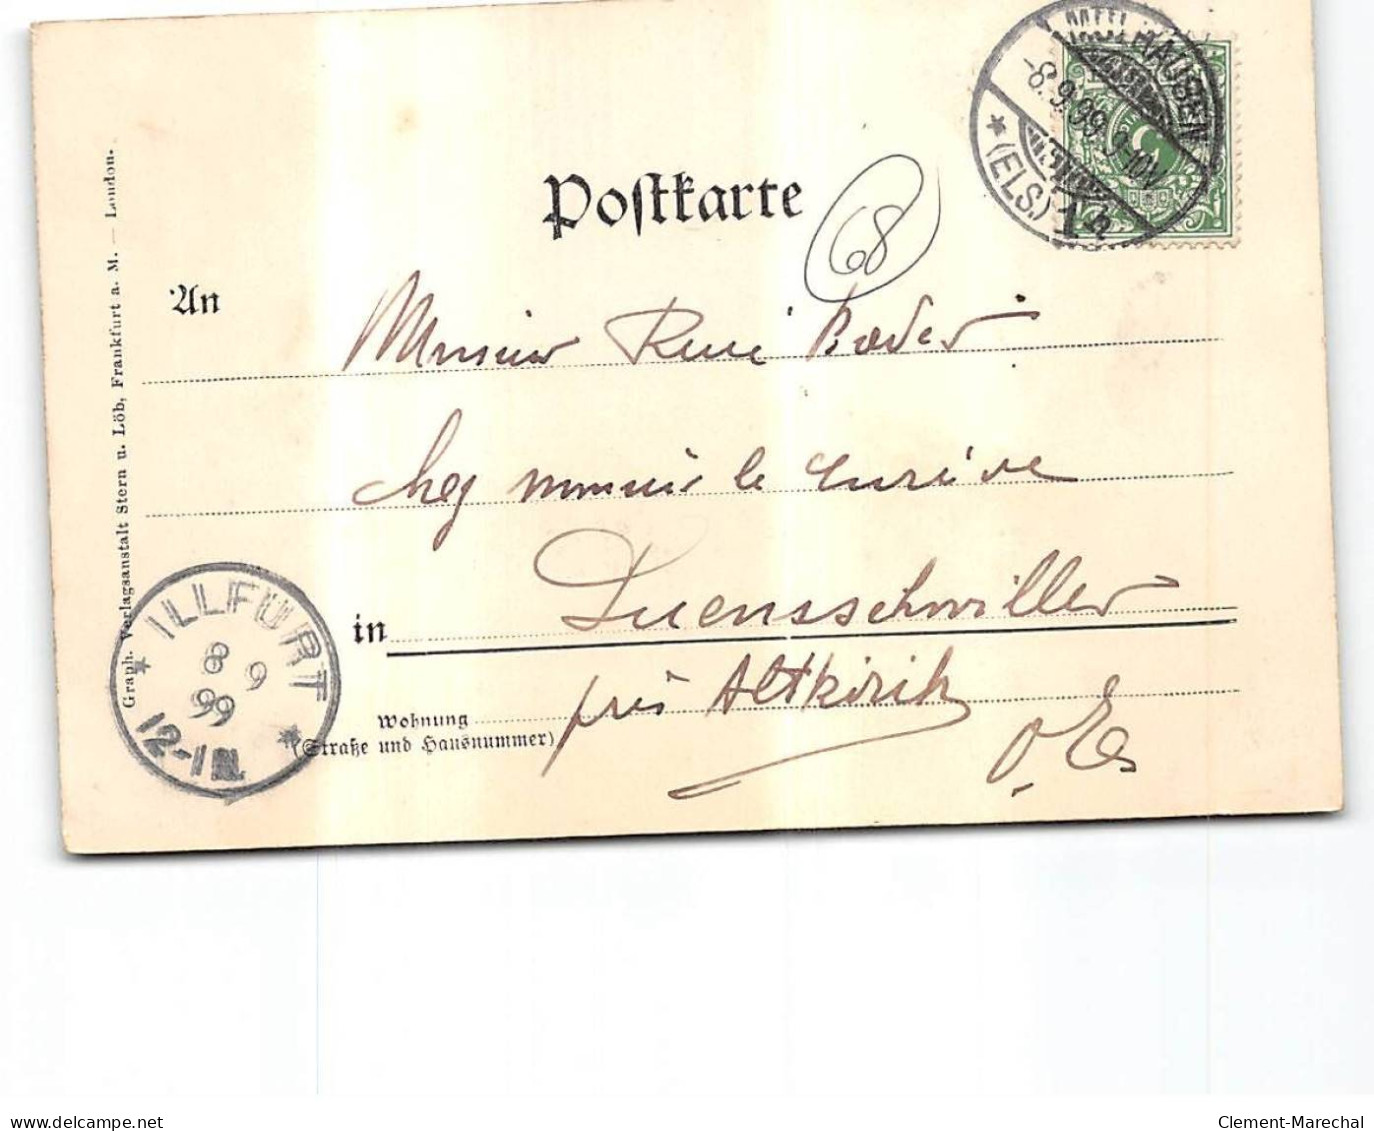 MÜLHAUSEN
-8.9.99.9-10V.
* (ELS.) 1 h
5
Postkarte
68
An
Monsieur René Bader
chez monsieur le curé de
Luemsschwiller
in
près Altkirch
Wohnung
(Straße und Hausnummer)
o. Els
ILLFURT
8 9
99
* 12-1 N. *
Graph. Verlagsanstalt Stern u. Löb, Frankfurt a. M. — London.
delcampe.net
Clement-Marechal